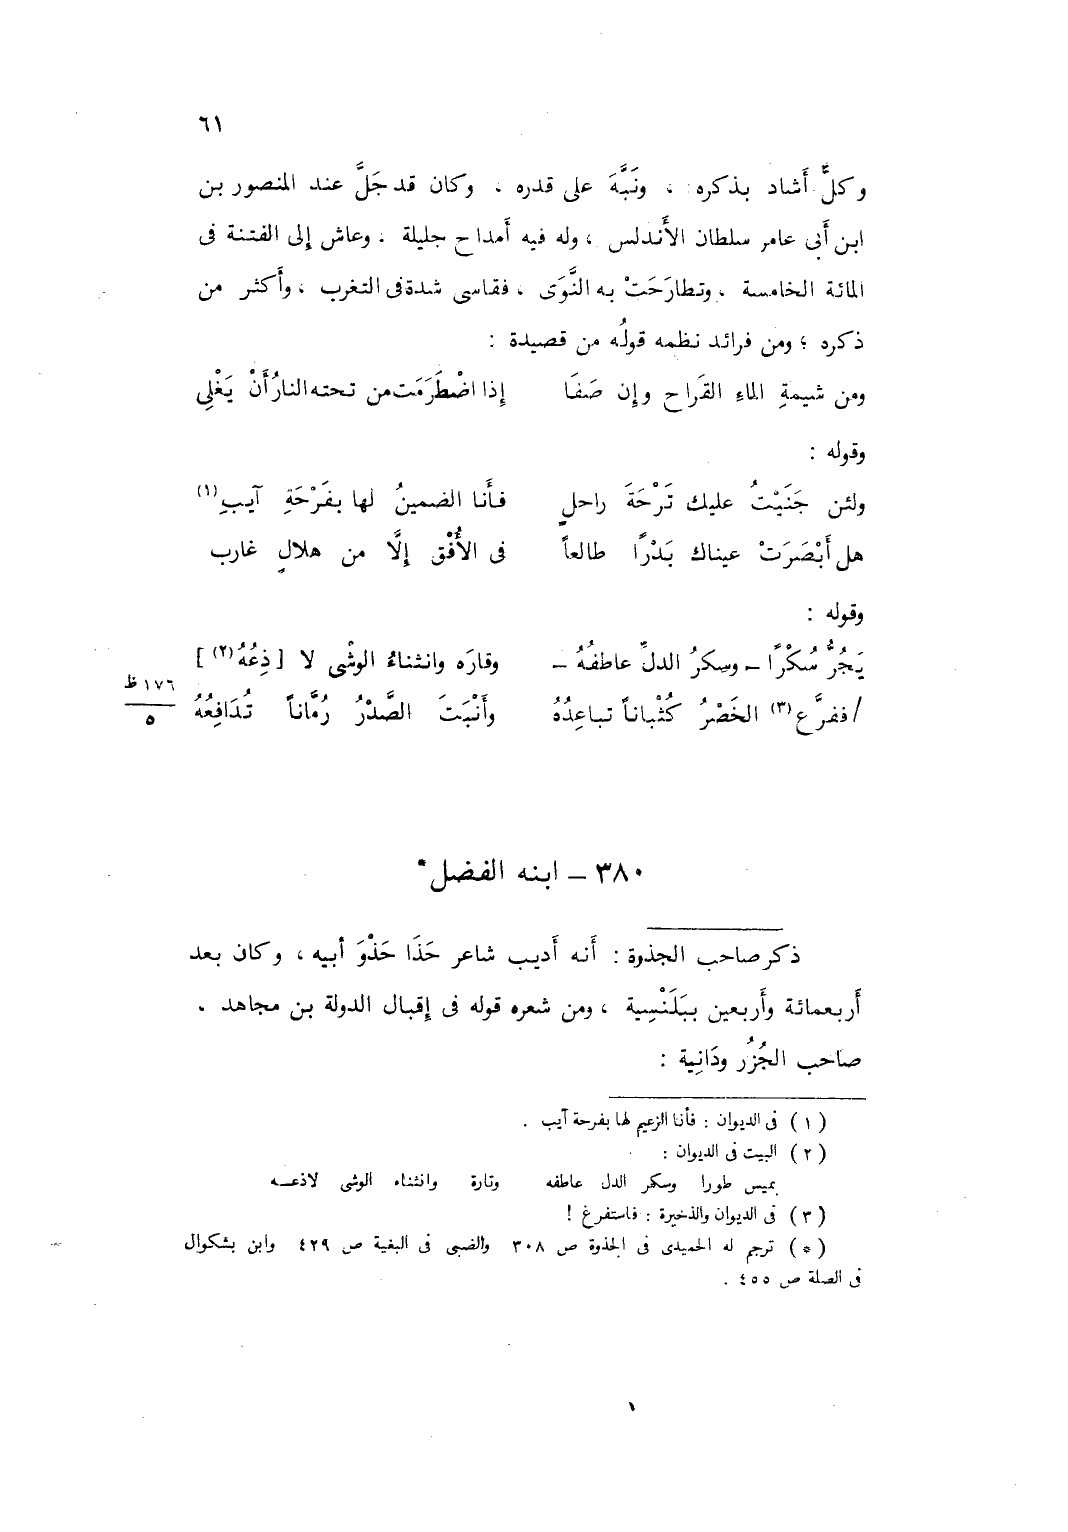 ٦١
وكلٌّ أَشاد بذكره ، ونَبَّهَ على قدره ، وكان قد جَلَّ عند المنصور بن
ابن أَبى عامر سلطان الأَندلس ، وله فيه أَمداح جليلة . وعاش إلى الفتنة فى
المائة الخامسة ، وتطارَحَتْ به النَّوَى ، فقاسى شدة فى التغرب ، وأَكثر من
ذكره ؛ ومن فرائد نظمه قولُه من قصيدة :
ومن شيمةِ الماءِ القَراح وإن صَفَا إذا اضْطَرَمَت من تحته النارُ أَنْ يَغْلِى
وقوله :
ولئن جَنَيْتُ عليك تَرْحَةَ راحلٍ فأَنا الضمينُ لها بفَرْحَةِ آيبِ(١)
هل أَبْصَرَتْ عيناك بَدْرًا طالعاً فى الأُفْق إلَّا من هلالٍ غارب
وقوله :
يَجُرُّ سُكْرًا ــ وسِكرُ الدلِّ عاطفُهُ ــ وقارَه وانثناءُ الوشْى لا [ ذِعُهُ(٢) ]
١٧٦ ظ
/ ففرَّع(٣) الخَصْرُ كُثْباناً تباعِدُهُ وأَنْبَتَ الصَّدْرُ رُمَّاناً تُدَافِعُهُ
٥
٣٨٠ ــ ابنه الفضل*
ذكر صاحب الجذوة : أَنه أَديب شاعر حَذَا حَذْوَ أبيه ، وكان بعد
أَربعمائة وأَربعين ببَلَنْسِية ، ومن شعره قوله فى إقبال الدولة بن مجاهد .
صاحب الجُزُر ودَانِية :
( ١ ) فى الديوان : فأنا الزعيم لها بفرحة آيب .
( ٢ ) البيت فى الديوان :
يميس طورا وسكر الدل عاطفه وتارة وانثناء الوشى لاذعـــه
( ٣ ) فى الديوان والذخيرة : فاستفرغ !
( * ) ترجم له الحميدى فى الجذوة ص ٣٠٨ والضبى فى البغية ص ٤٢٩ وابن بشكوال
فى الصلة ص ٤٥٥ .